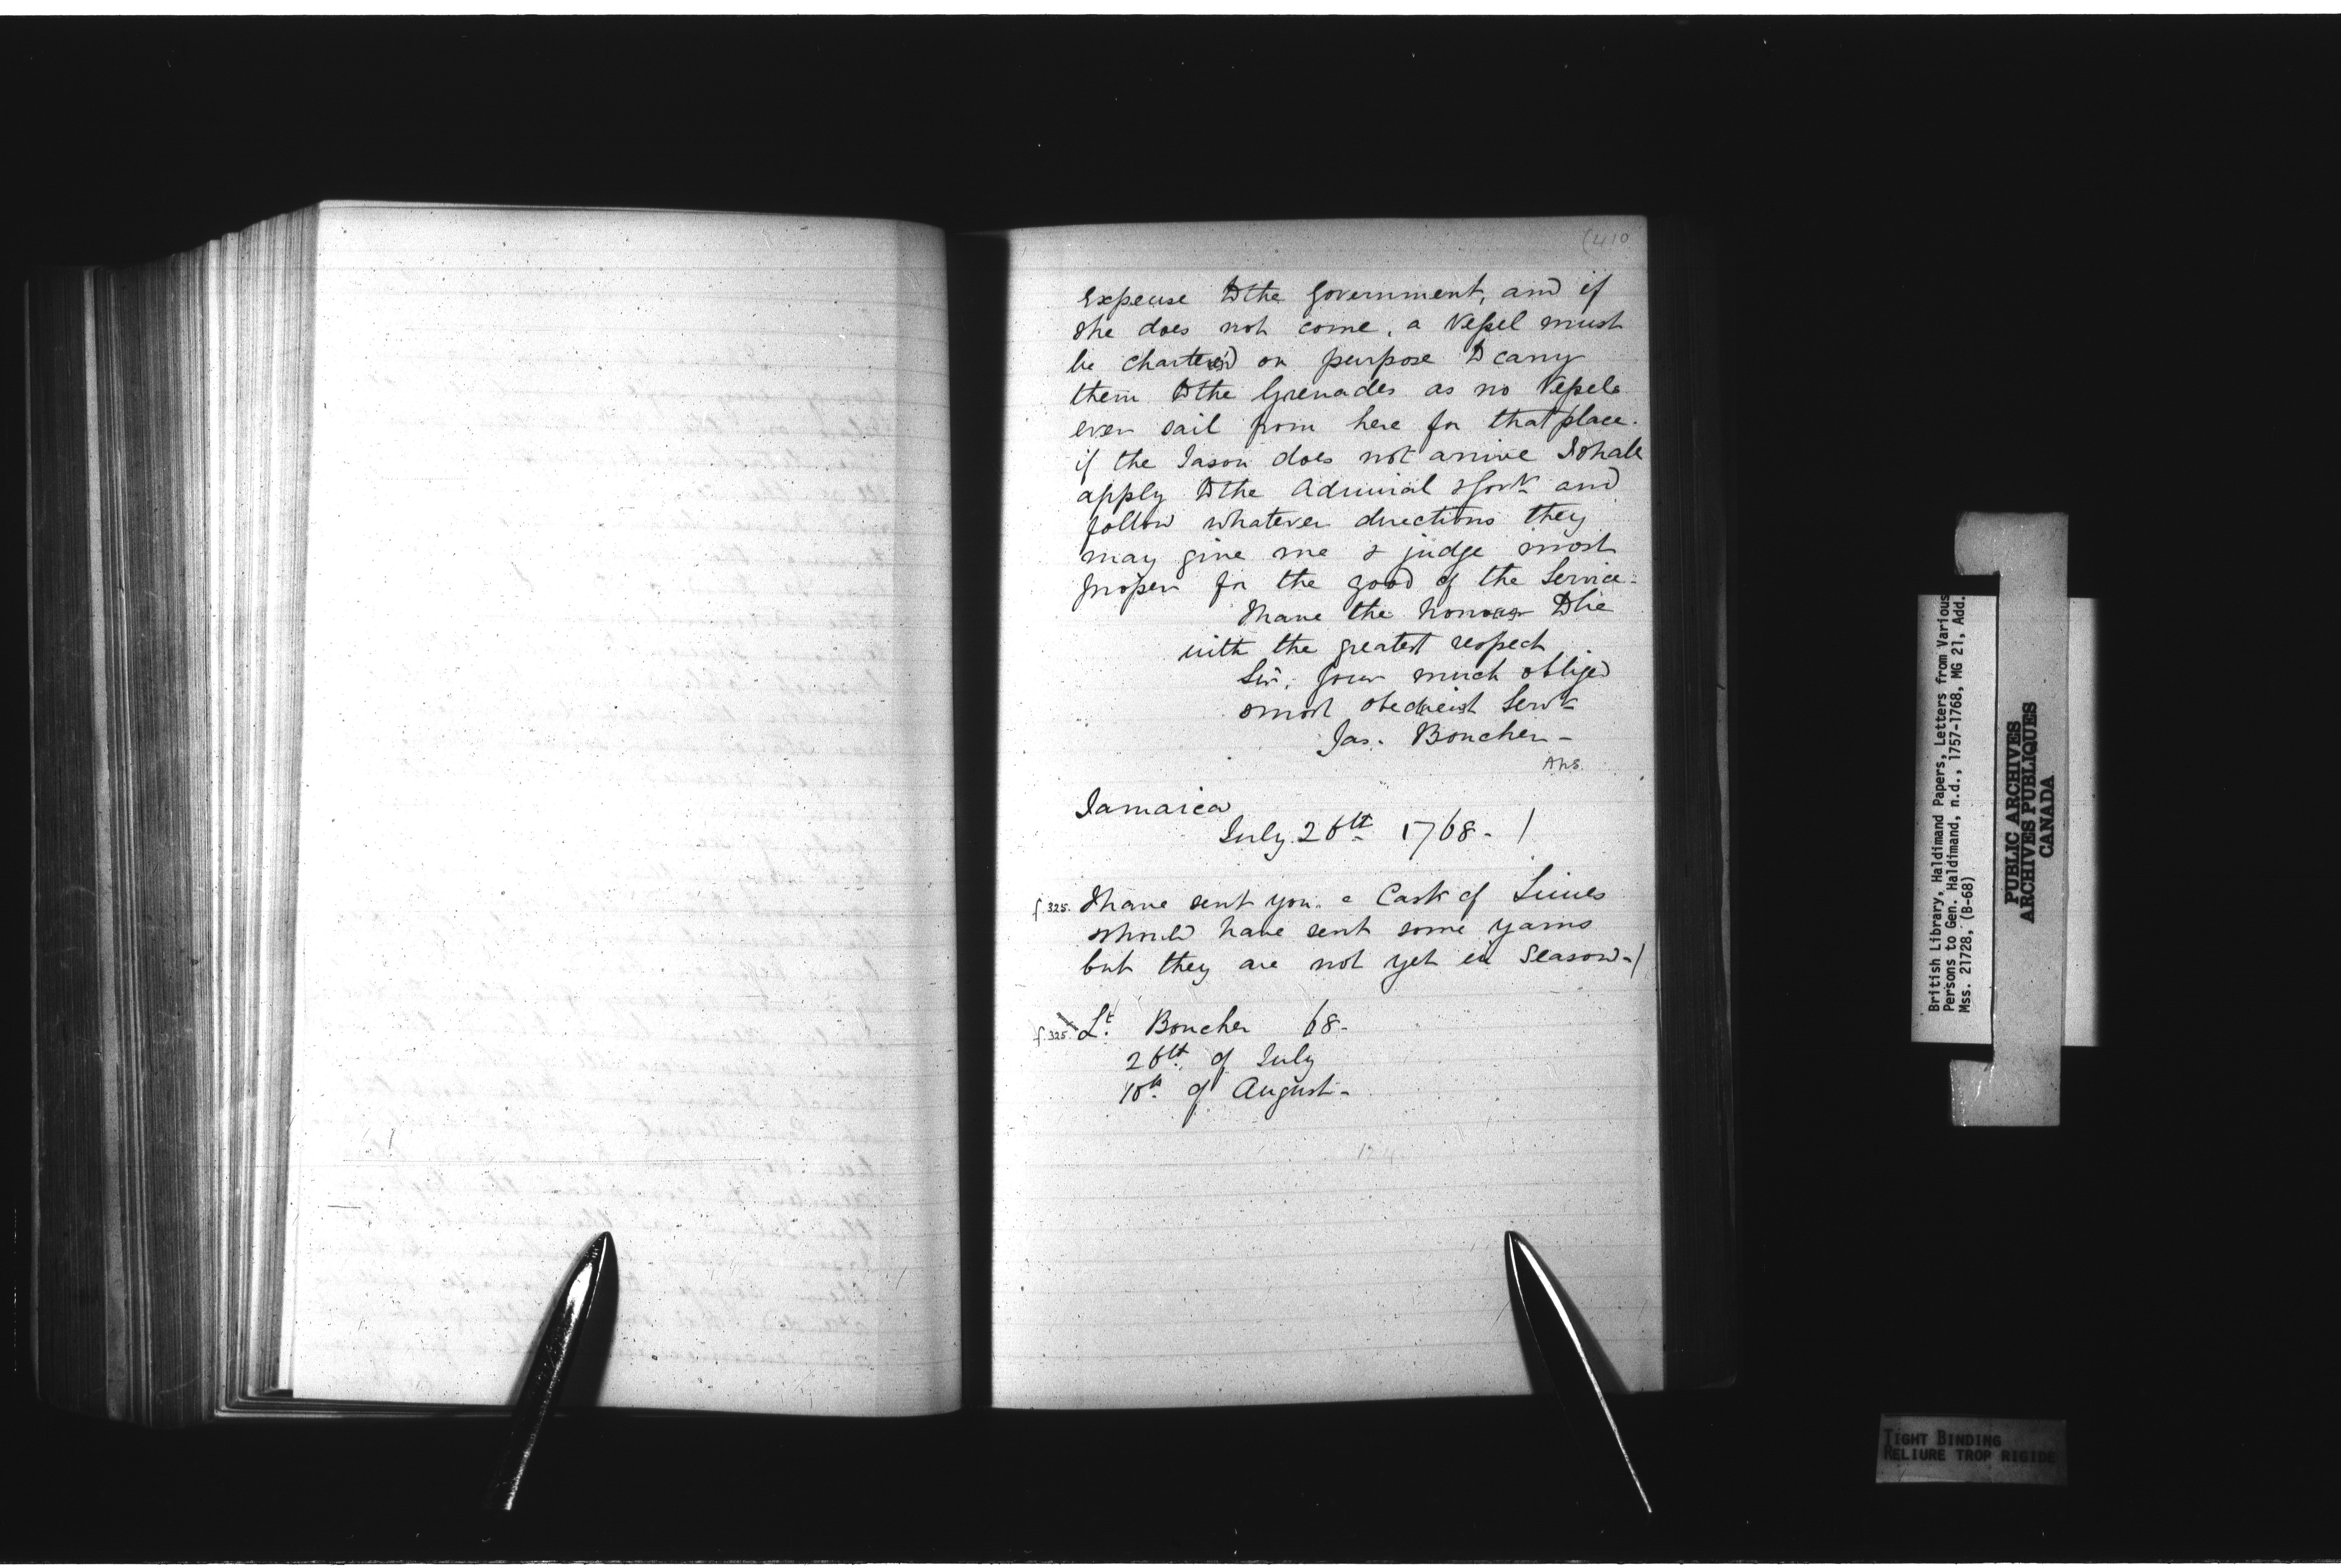 (410
Expense to the Government, and if
she does not come, a Vessel must
be charter'd on purpose to carry
them to the Grenades as no Vessels
ever sail from here for that place.
if the Jason does not arrive I shall
apply to the Admiral & Govr. and
follow whatever directions they
may give me & judge most
proper for the good of the Service-
I have the honour to be
with the greatest respect
Sir, your much obliged
& most obedient Servt.
Jas. Boucher -
Ans.
Jamaica
July 26th 1768 - /
f.325. I have sent you a Cask of Limes
should have sent some yams
but they are not yet in Season -/
f.325. Lt. Boucher 68-
26th of July
10th of August -
British Library, Haldimand Papers, Letters from Various
Persons to Gen. Haldimand, n.d., 1757-1768, MG 21, Add.
Mss. 21728, (B-68)
PUBLIC ARCHIVES
ARCHIVES PUBLIQUES
CANADA
TIGHT BINDING
RELIURE TROP RIGIDE